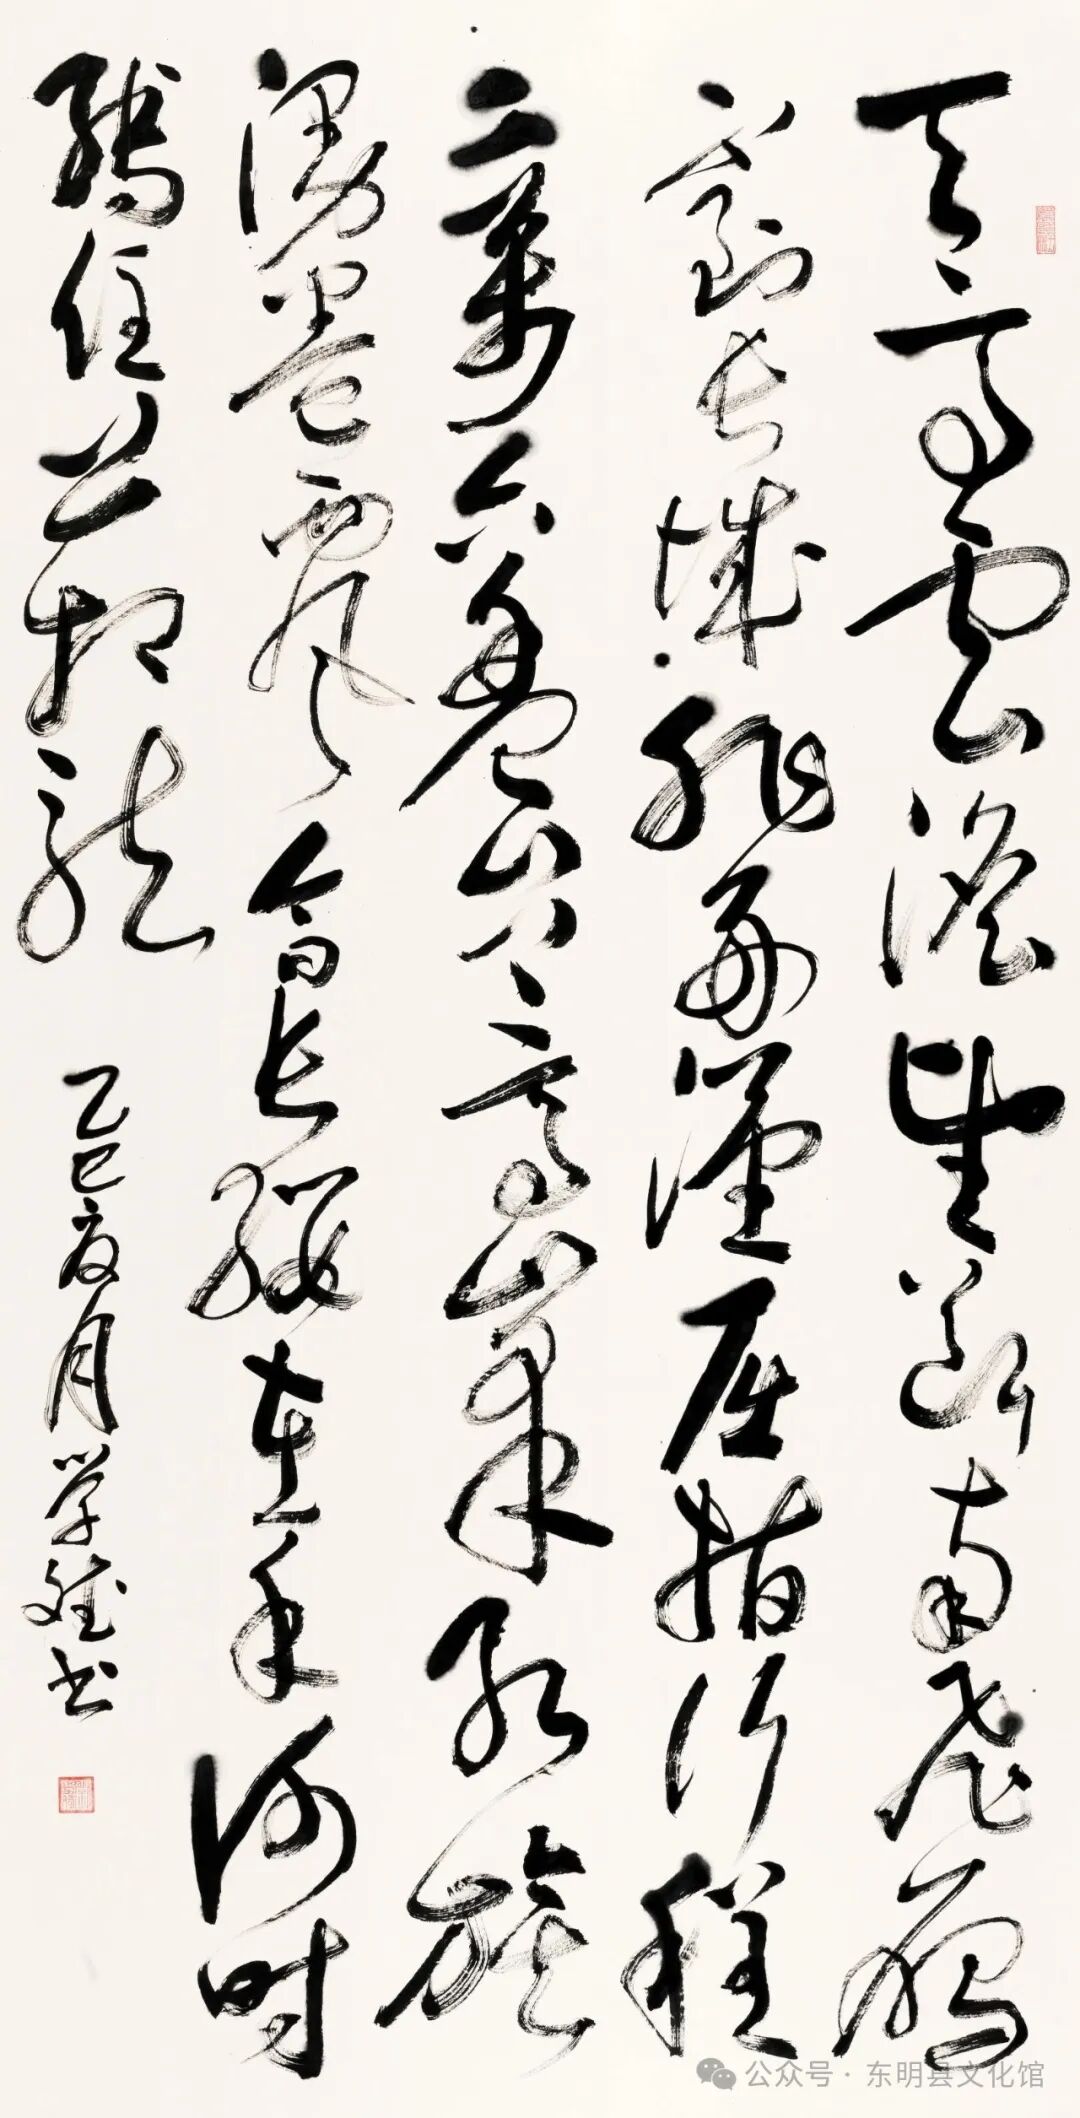 天高雲澹望断南飞雁
不到长城非好漢屈指行程
二萬六盘山上高峯红旗
漫卷西风今日长缨在手何时
缚住苍龙
乙巳夏月学斌书
公众号·东明县文化馆